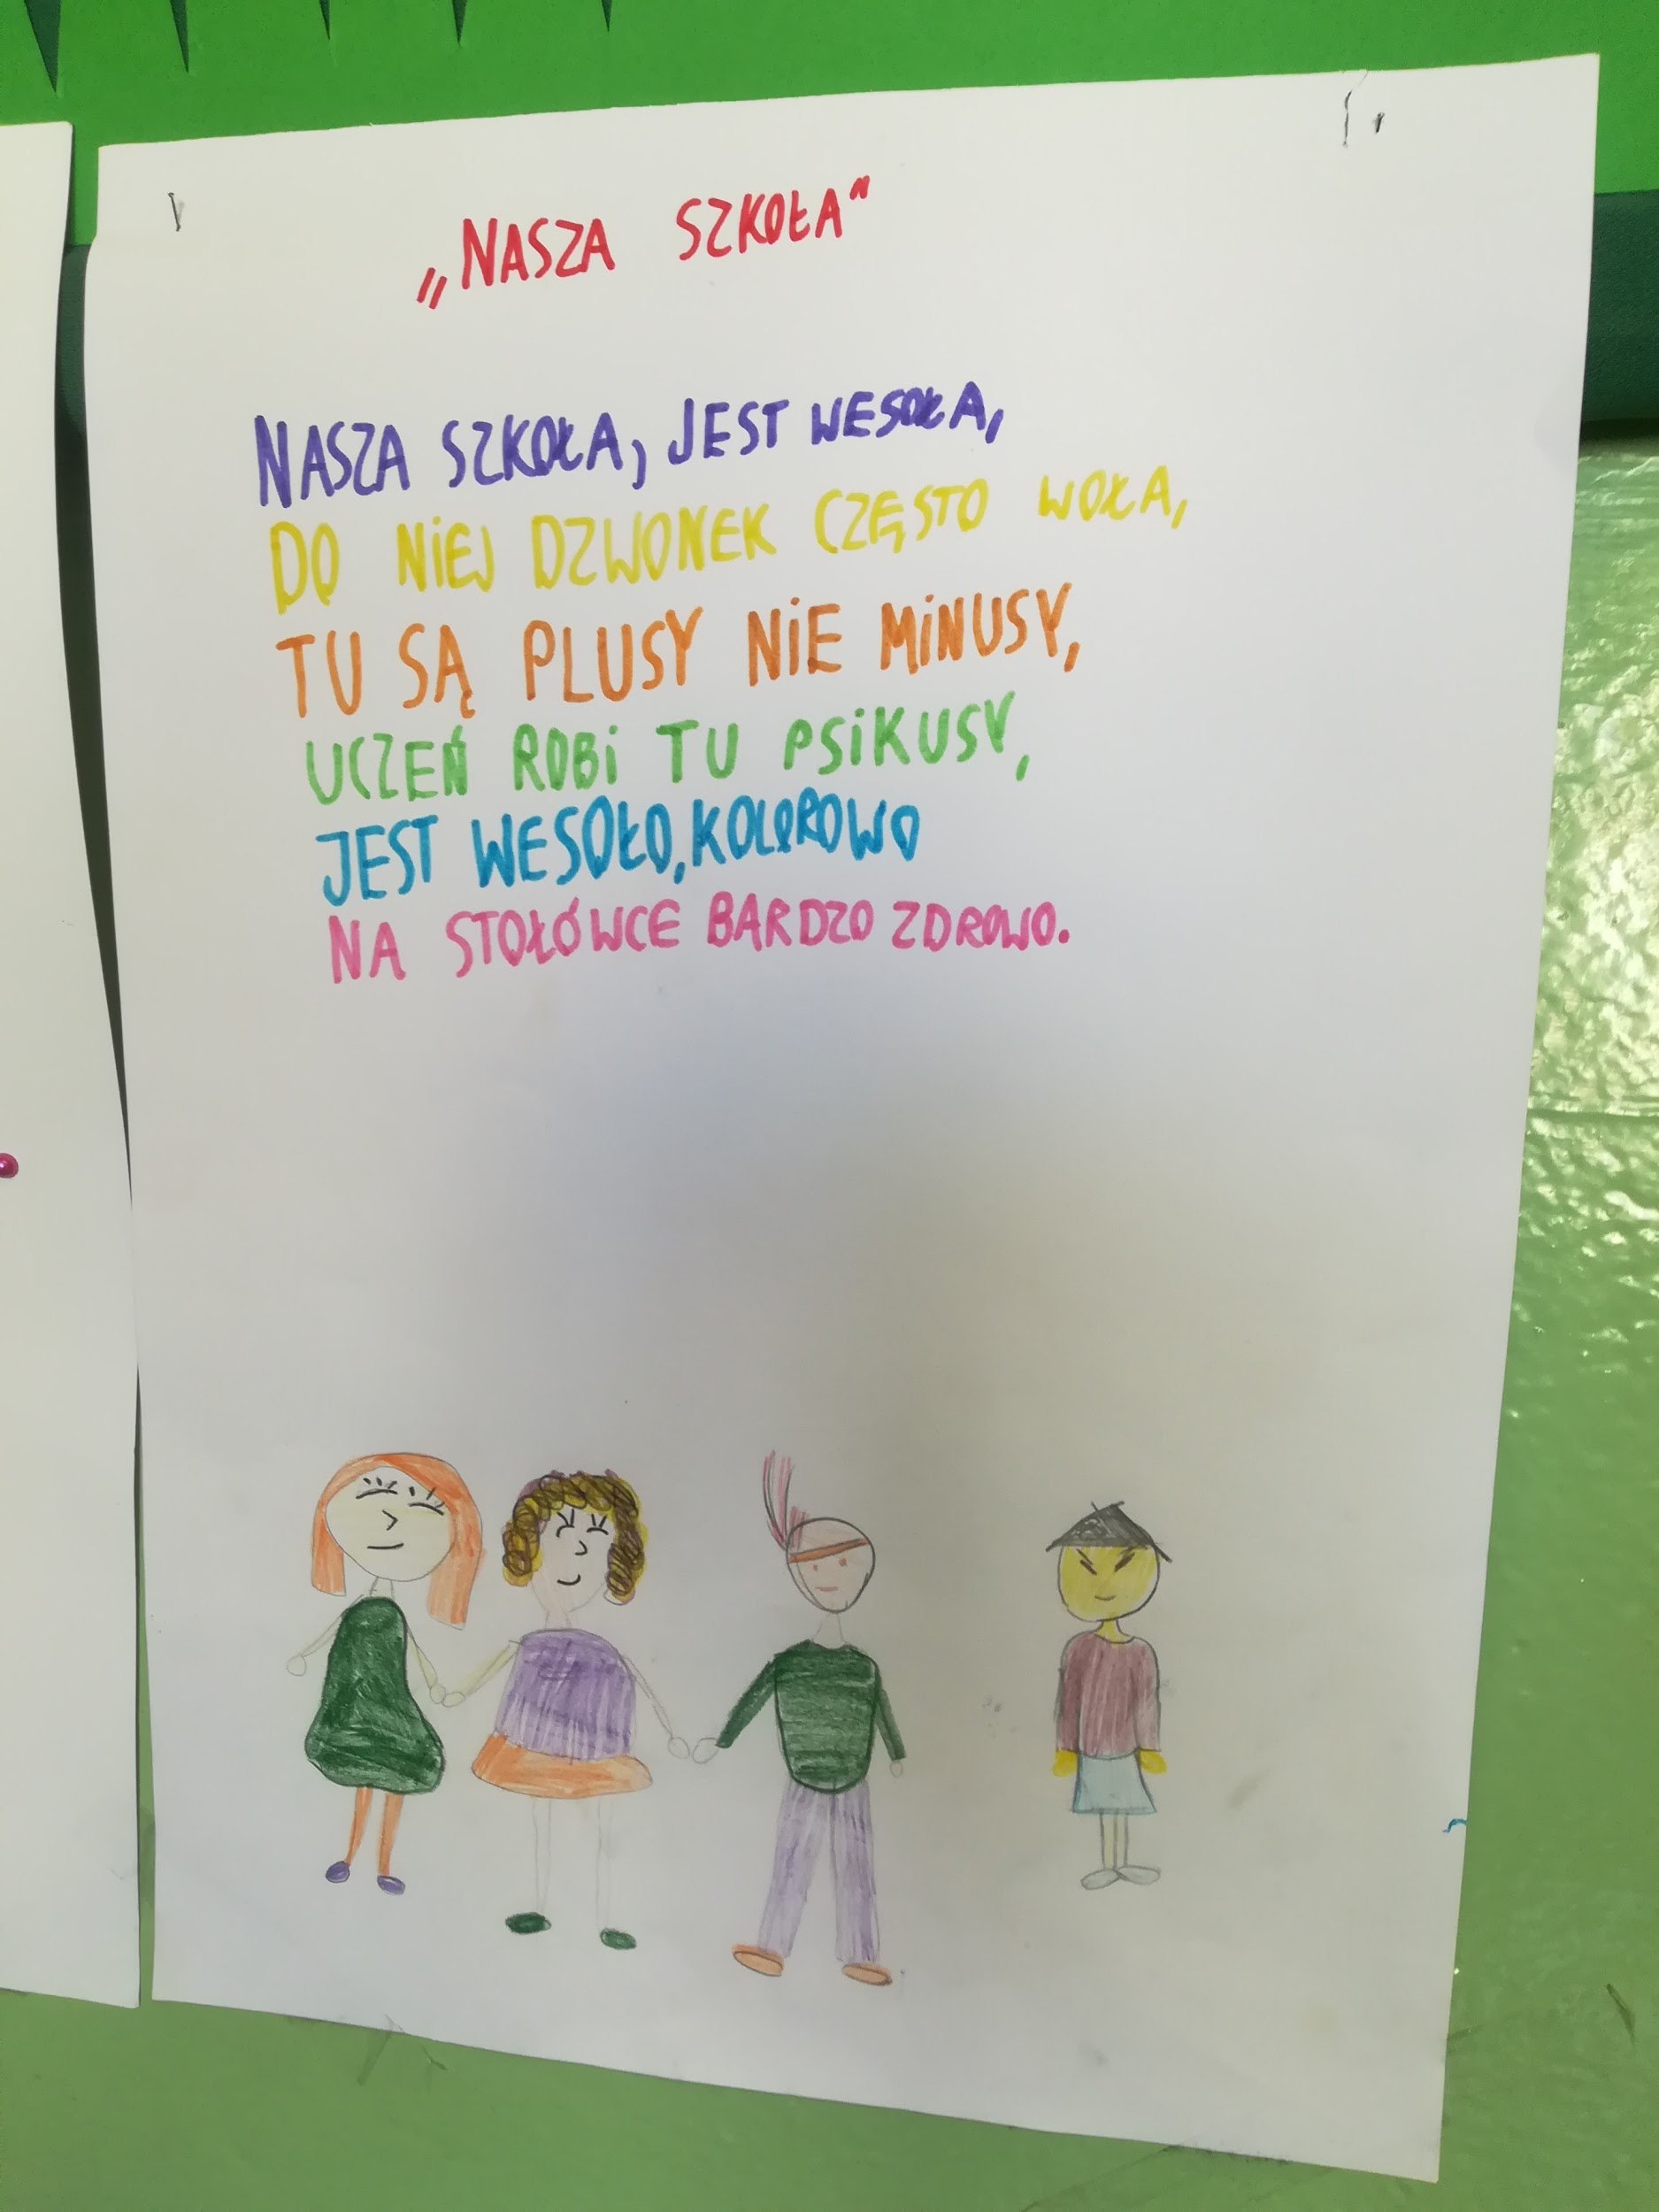 „NASZA SZKOŁA"
NASZA SZKOŁA, JEST WESOŁA,
DO NIEJ DZWONEK CZĘSTO WOŁA,
TU SĄ PLUSY NiE MiNUSY,
UCZEŃ ROBi TU PSiKUSY,
JEST WESOŁO, KOLOROWO
NA STOŁÓWCE BARDZO ZDROWO.